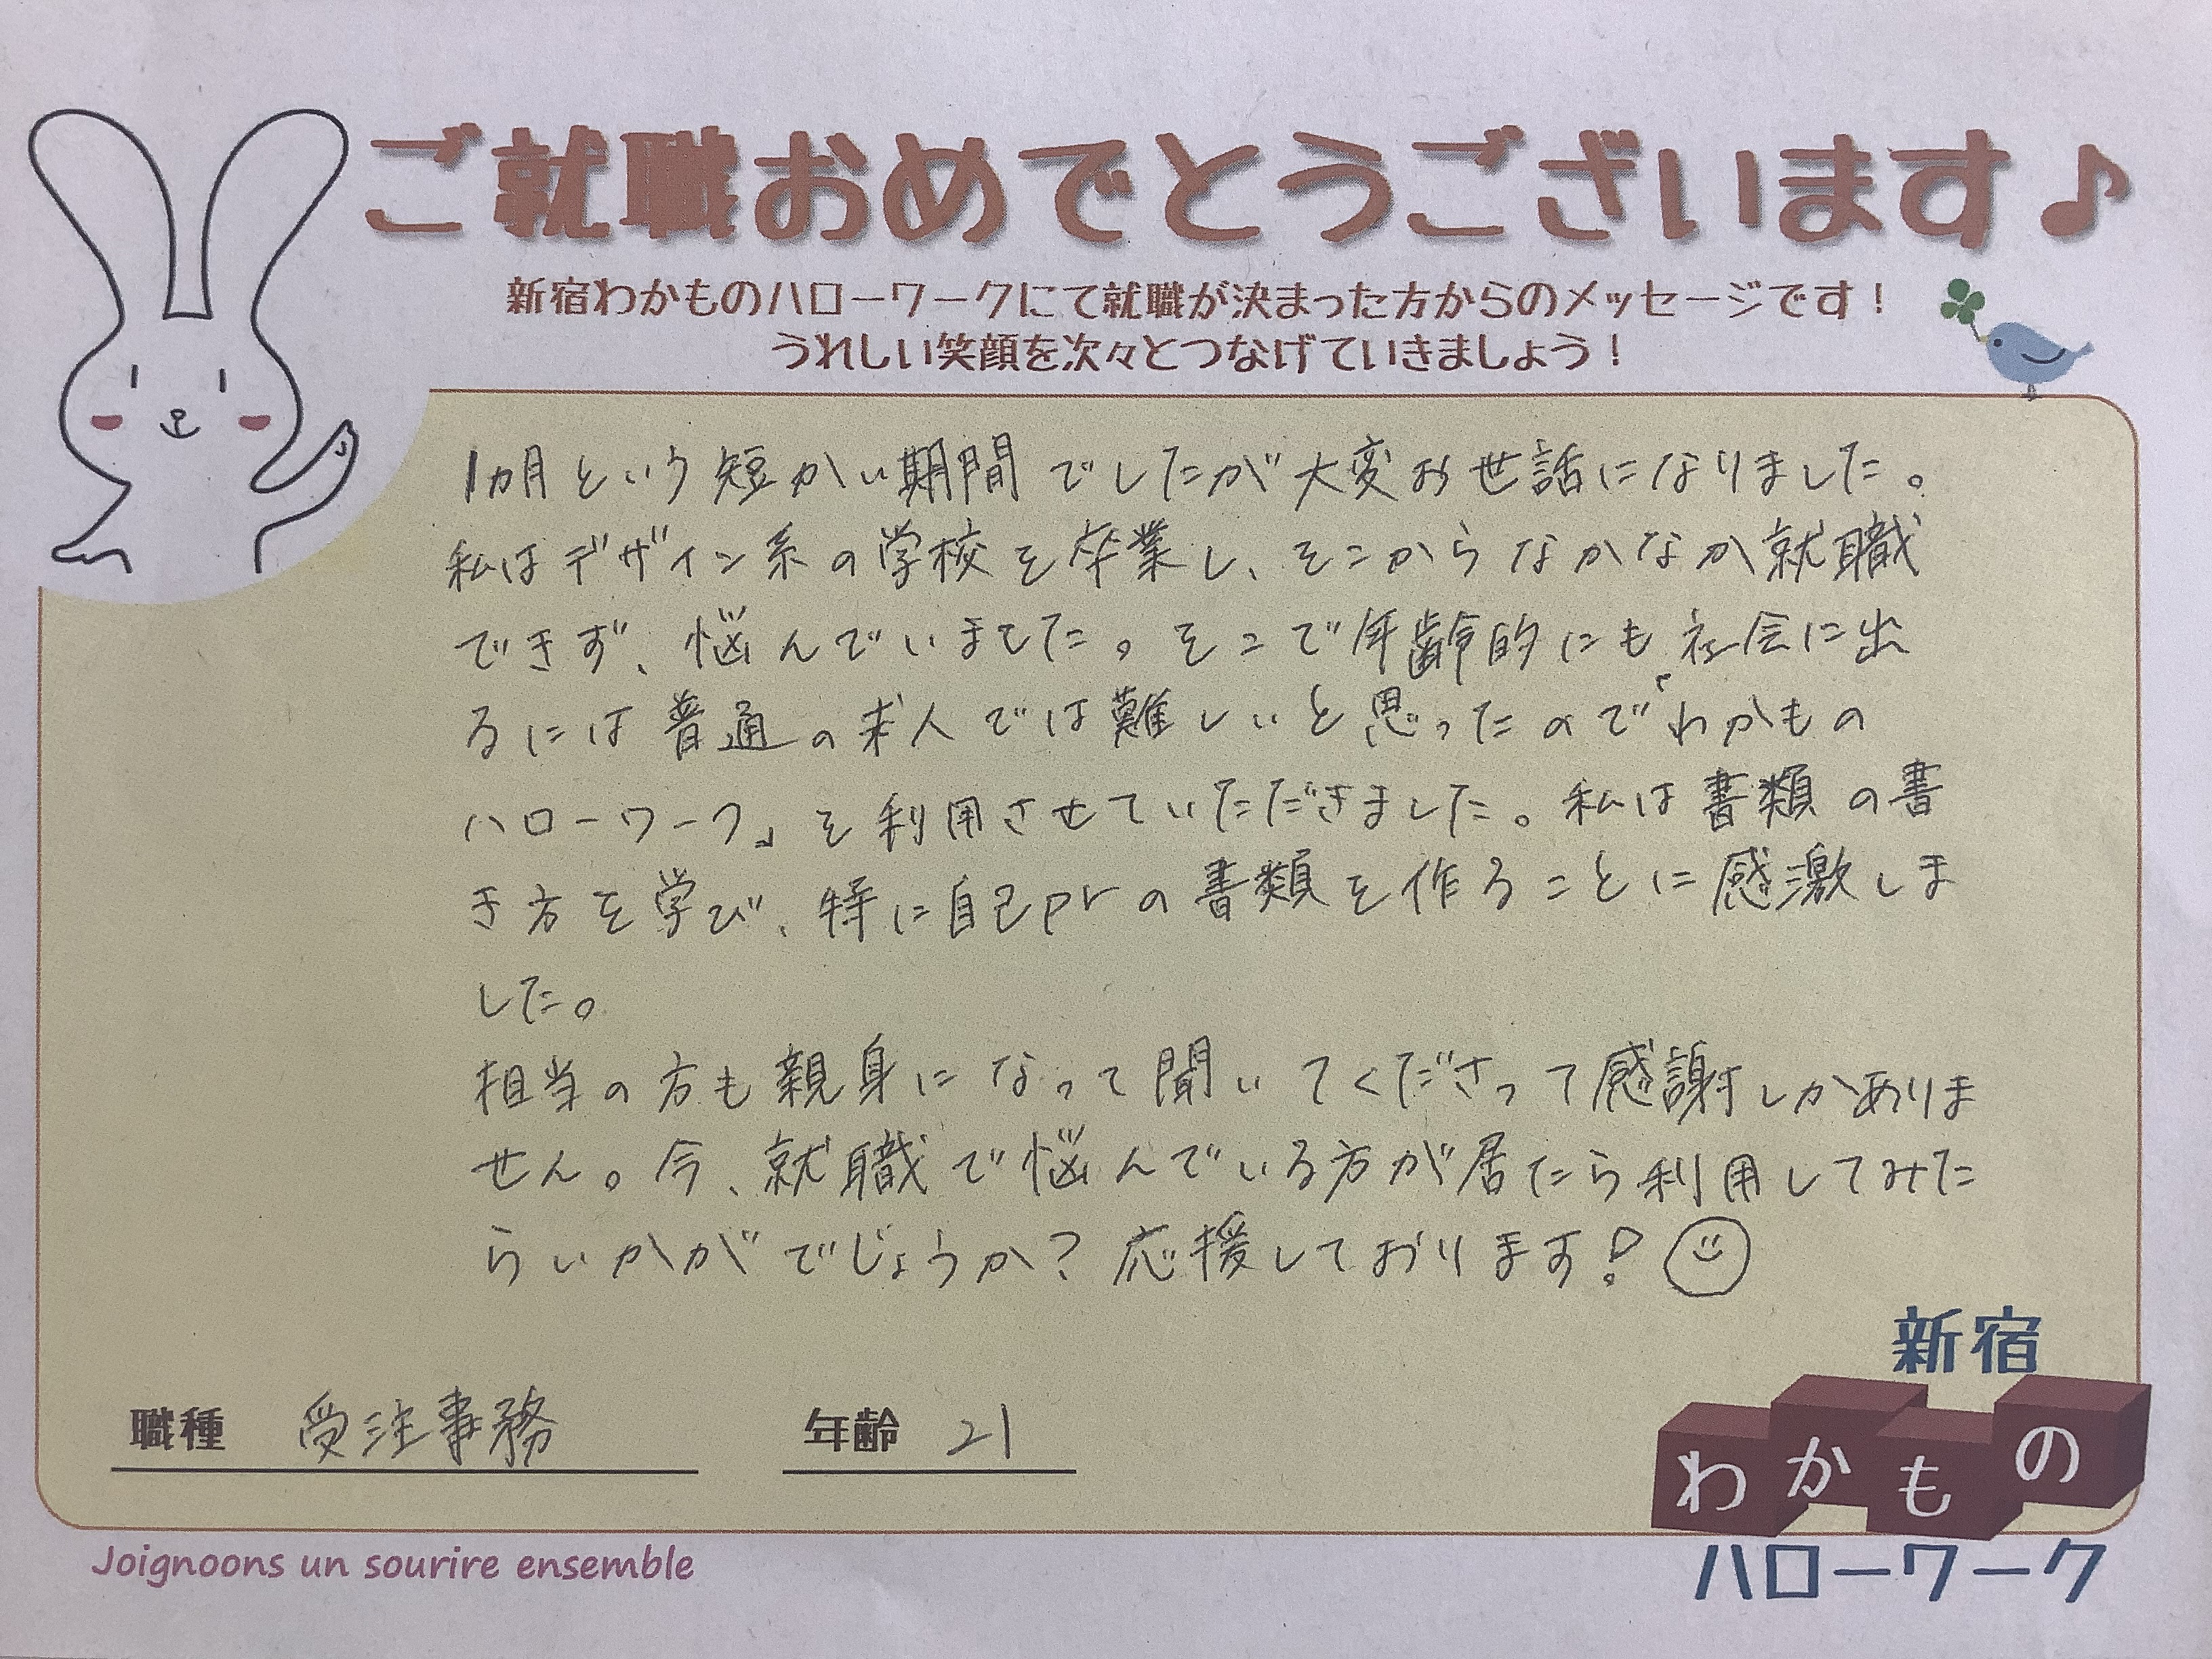 ご就職おめでとうございます♪
新宿わかものハローワークにて就職が決まった方からのメッセージです！
うれしい笑顔を次々とつなげていきましょう！
1ヵ月という短かい期間でしたが大変お世話になりました。
私はデザイン系の学校を卒業し、そこからなかなか就職
できず、悩んでいました。そこで年齢的にも社会に出
るには普通の求人では難しいと思ったので「わかもの
ハローワーク」を利用させていただきました。私は書類の書
き方を学び、特に自己prの書類を作ることに感激しま
した。
担当の方も親身になって聞いてくださって感謝しかありま
せん。今、就職で悩んでいる方が居たら利用してみた
らいかがでじょうか？応援しております！
職種 受注事務 年齢 21
新宿
わかもの
ハローワーク
Joignoons un sourire ensemble